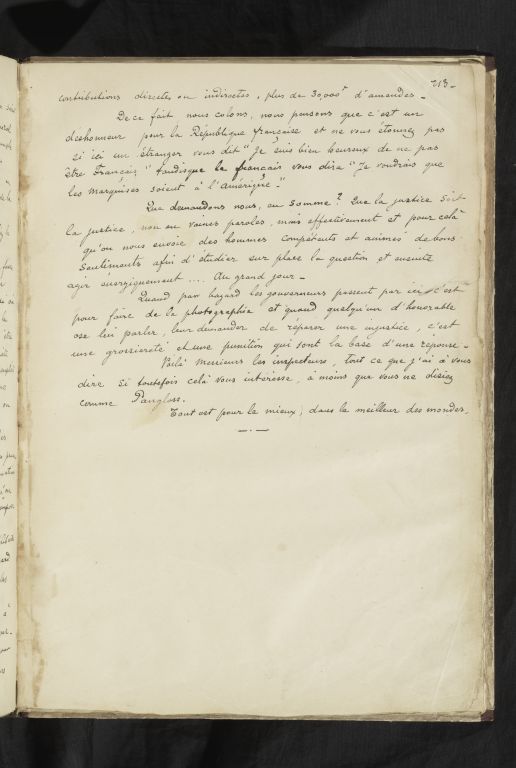 213-
contributions directes ou indirectes, plus de 30,000f d'amendes -
De ce fait nous colons, nous pensons que c'est un
déshonneur pour la République française et ne vous étonnez pas
si ici un étranger vous dit "Je suis bien heureux de ne pas
être Français" tandisque le français vous dira "Je voudrais que
les Marquises soient à l'Amérique"
Que demandons nous, en somme? Que la justice soit
la justice, non en vaines paroles, mais effectivement et pour celà
qu'on nous envoie des hommes compétents et animés de bons
sentiments afin d'étudier sur place la question et ensuite
agir energiquement .... Au grand jour -
Quand par hazard les gouverneurs passent par ici c'est
pour faire de la photographie et quand quelqu'un d'honorable
ose lui parler, leur demander de réparer une injustice, c'est
une grossiereté et une punition qui sont la base d'une reponse -
Voilà Messieurs les inspecteurs, tout ce que j'ai à vous
dire si toutefois celà vous intéresse, à moins que vous ne disiez
comme Pangloss.
Tout est pour le mieux, dans le meilleur des mondes.